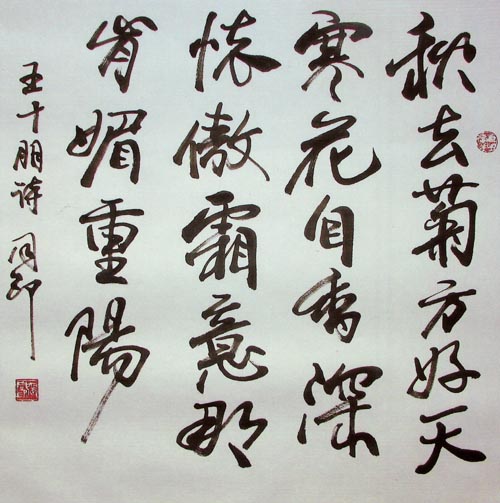 秋去菊方好天
寒花自香深
怀傲霜意那
肯媚重陽
王十朋诗